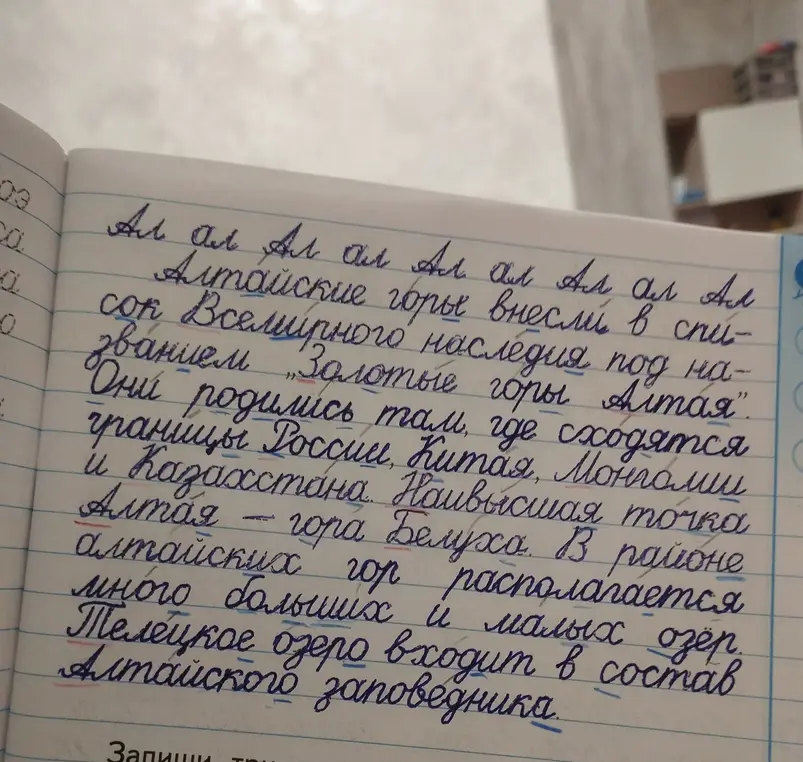 Ал ал Ал ал Ал ал Ал ал Ал
Алтайские горы внесли в спи-
сок Всемирного наследия под на-
званием „Золотые горы Алтая".
Они родились там, где сходятся
границы России, Китая, Монголии
и Казахстана. Наивысшая точка
Алтая – гора Белуха. В районе
алтайских гор располагается
много больших и малых озёр.
Телецкое озеро входит в состав
Алтайского заповедника.
Запиши